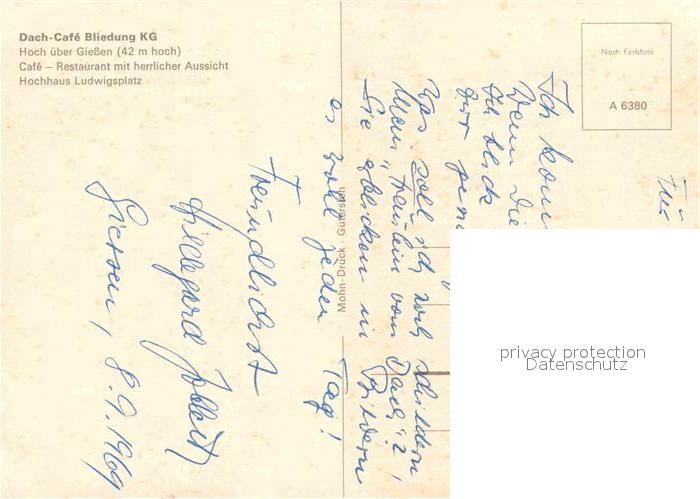 Dach-Café Bliedung KG
Hoch über Gießen (42 m hoch)
Café – Restaurant mit herrlicher Aussicht
Hochhaus Ludwigsplatz
Nach Farbfoto
A 6380
Mohn-Druck · Gütersloh
Für
Ich
Wenn die
Ich blick
gut
Was soll ich noch schildern
Mein „Fräulein vom Dach"?
Sie erblicken in Bildern
es wohl jeden Tag!
Freundlichst
Hildegard
Giessen, 8.9.1969
privacy protection
Datenschutz